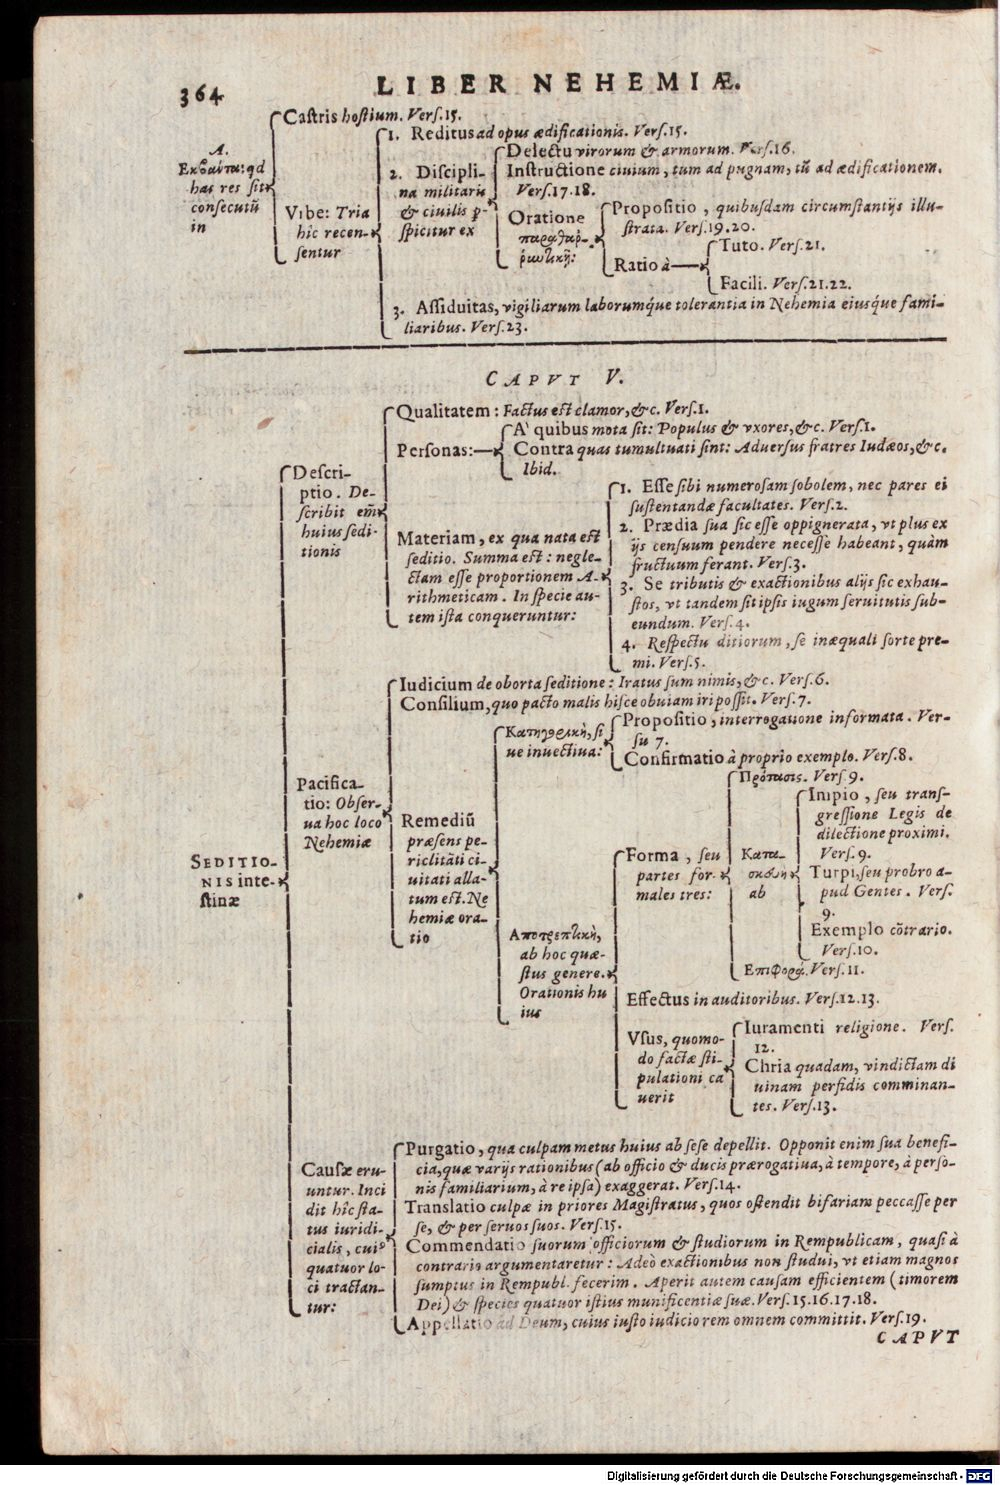 364
LIBER NEHEMIÆ.
A.
Εκβαύτα: qd
has res sit
consecutū
in
Castris hostium. Vers.15.
Vrbe: Tria
hic recen-
sentur
1. Reditus ad opus ædificationis. Vers.15.
2. Discipli-
na militaris
& ciuilis p-
spicitur ex
Delectu virorum & armorum. Vers.16.
Instructione ciuium, tum ad pugnam, tū ad ædificationem.
Vers.17.18.
Oratione
Propositio, quibusdam circumstantijs illu-
strata. Vers.19.20.
Ratio à
Tuto. Vers.21.
Facili. Vers.21.22.
3. Assiduitas, vigiliarum laborumq́ue tolerantia in Nehemia eiusq́ue fami-
liaribus. Vers.23.
CAPVT V.
SEDITIO-
NIS inte-
stinæ
Descri-
ptio. De-
scribit em̄
huius sedi-
tionis
Qualitatem: Factus est clamor, &c. Vers.1.
Personas:
A' quibus mota sit: Populus & vxores, &c. Vers.1.
Contra quas tumultuati sint: Aduersus fratres Iudæos, &c.
Ibid.
Materiam, ex qua nata est
seditio. Summa est: negle-
ctam esse proportionem A-
rithmeticam. In specie au-
tem ista conqueruntur:
1. Esse sibi numerosam sobolem, nec pares ei
sustentandæ facultates. Vers.2.
2. Prædia sua sic esse oppignerata, vt plus ex
ijs censuum pendere necesse habeant, quàm
fructuum ferant. Vers.3.
3. Se tributis & exactionibus alijs sic exhau-
stos, vt tandem sit ipsis iugum seruitutis sub-
eundum. Vers.4.
4. Respectu ditiorum, se inæquali sorte pre-
mi. Vers.5.
Pacifica-
tio: Obser-
ua hoc loco
Nehemiæ
Iudicium de oborta seditione: Iratus sum nimis, &c. Vers.6.
Consilium, quo pacto malis hisce obuiam iri possit. Vers.7.
Remediū
præsens pe-
riclitāti ci-
uitati alla-
tum est. Ne
hemiæ ora-
tio
Κατηγορικὴ, si
ue inuectiua:
Propositio, interrogatione informata. Ver-
su 7.
Confirmatio à proprio exemplo. Vers.8.
Αποτρεπτικὴ,
ab hoc quæ-
stus genere.
Orationis hu
ius
Forma, seu
partes for-
males tres:
Πρότασις. Vers.9.
Κατα-
σκευὴ
ab
Impio, seu trans-
gressione Legis de
dilectione proximi.
Vers.9.
Turpi, seu probro a-
pud Gentes. Vers.
9.
Exemplo cōtrario.
Vers.10.
Επιφορά. Vers.11.
Effectus in auditoribus. Vers.12.13.
Vsus, quomo-
do factæ sti-
pulationi ca
uerit
Iuramenti religione. Vers.
12.
Chria quadam, vindictam di
uinam perfidis comminan-
tes. Vers.13.
Causæ eru-
untur. Inci
dit hîc sta-
tus iuridi-
cialis, cui9
quatuor lo-
ci tractan-
tur:
Purgatio, qua culpam metus huius ab sese depellit. Opponit enim sua benefi-
cia, quæ varijs rationibus (ab officio & ducis prærogatiua, à tempore, à perso-
nis familiarium, à re ipsa) exaggerat. Vers.14.
Translatio culpæ in priores Magistratus, quos ostendit bifariam peccasse per
se, & per seruos suos. Vers.15.
Commendatio suorum officiorum & studiorum in Rempublicam, quasi à
contrario argumentaretur: Adeò exactionibus non studui, vt etiam magnos
sumptus in Rempubl. fecerim. Aperit autem causam efficientem (timorem
Dei) & species quatuor istius munificentiæ suæ. Vers.15.16.17.18.
Appellatio ad Deum, cuius iusto iudicio rem omnem committit. Vers.19.
CAPVT
Digitalisierung gefördert durch die Deutsche Forschungsgemeinschaft - DFG